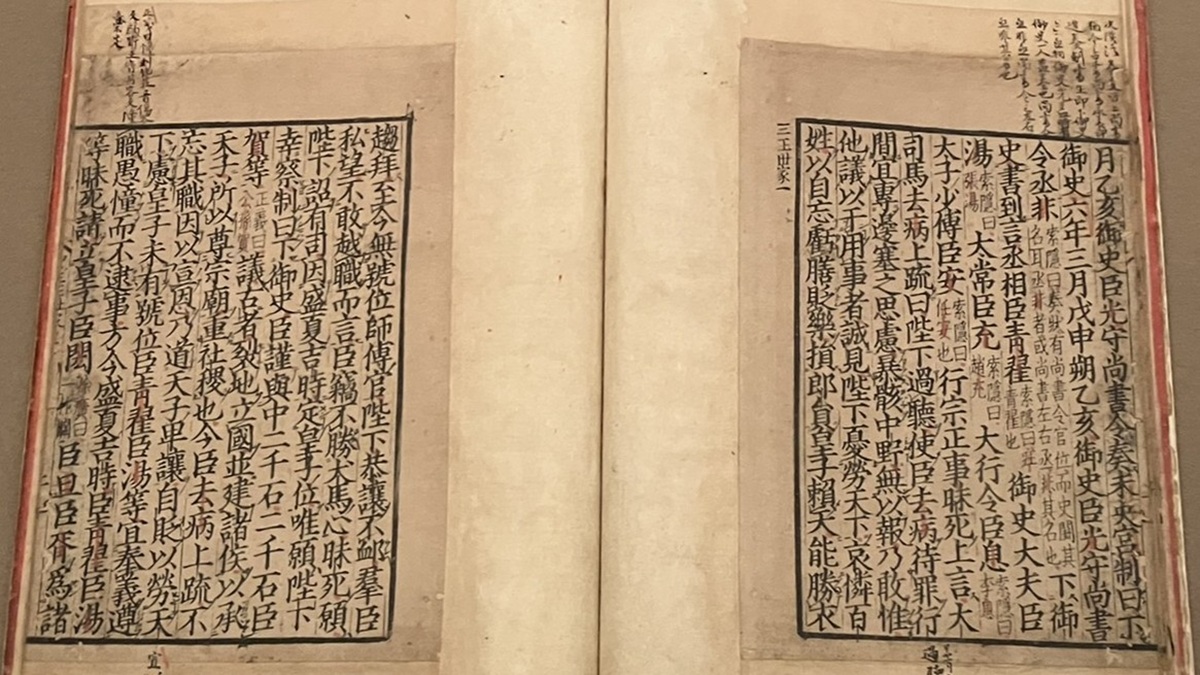 月乙亥御史臣光守尚書令奏未央宮制曰下
御史六年三月戊申朔乙亥御史臣光守尚書
令丞非索隱曰奏狀有尚書令官位而史闕其名耳丞非者或尚書左右丞非其名也下御
史書到言丞相臣青翟索隱曰莊青翟也御史大夫臣
湯索隱曰張湯大常臣充索隱曰趙充大行令臣息索隱曰李息
大子少傅臣安索隱曰任安也行宗正事昧死上言大
司馬去病上疏曰陛下過聽使臣去病待罪行
間宜專邊塞之思慮暴骸中野無以報乃敢惟
他議以干用事者誠見陛下憂勞天下哀憐百
姓以自忘虧膳貶樂損郎員皇子賴天能勝衣
三王世家一
趨拜至今無號位師傅官陛下恭讓不卹羣臣
私望不敢越職而言臣竊不勝犬馬心昧死願
陛下詔有司因盛夏吉時定皇子位唯願陛下
幸察制曰下御史臣謹與中二千石二千石臣
賀等正義曰公孫賀議古者裂地立國並建諸侯以承
天子所以尊宗廟重社稷也今臣去病上疏不
忘其職因以宣恩乃道天子卑讓自貶以勞天
下慮皇子未有號位臣青翟臣湯等宜奉義遵
職愚憧而不逮事方今盛夏吉時臣青翟臣湯
等昧死請立皇子臣閎臣旦臣胥為諸
宜